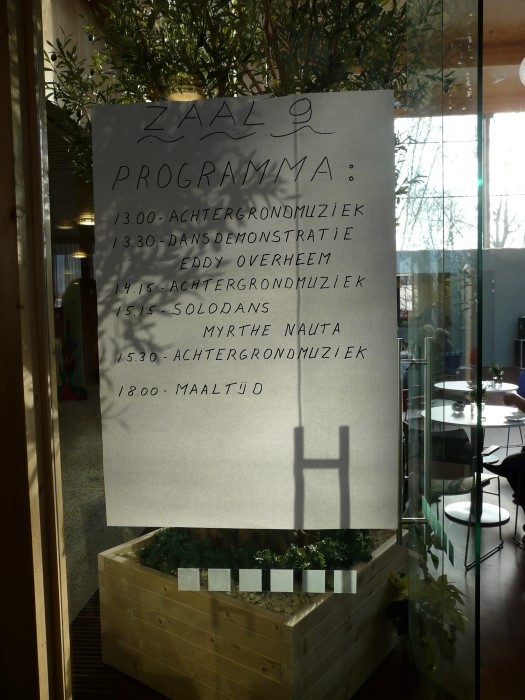 ZAAL 9
PROGRAMMA:
13.00 - ACHTERGRONDMUZIEK
13.30 - DANSDEMONSTRATIE
EDDY OVERHEEM
14.15 - ACHTERGRONDMUZIEK
15.15 - SOLODANS
MYRTHE NAUTA
15.30 - ACHTERGRONDMUZIEK
18.00 - MAALTIJD